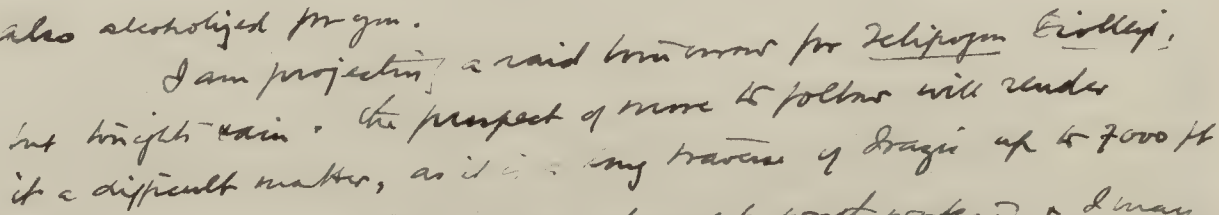 also alcoholized for you.
I am projecting a raid tomorrow for Telipogon Endresii,
but tonight's rain & the prospect of more to follow will render
it a difficult matter, as it is a long traverse of Irazú up to 7000 ft
I may